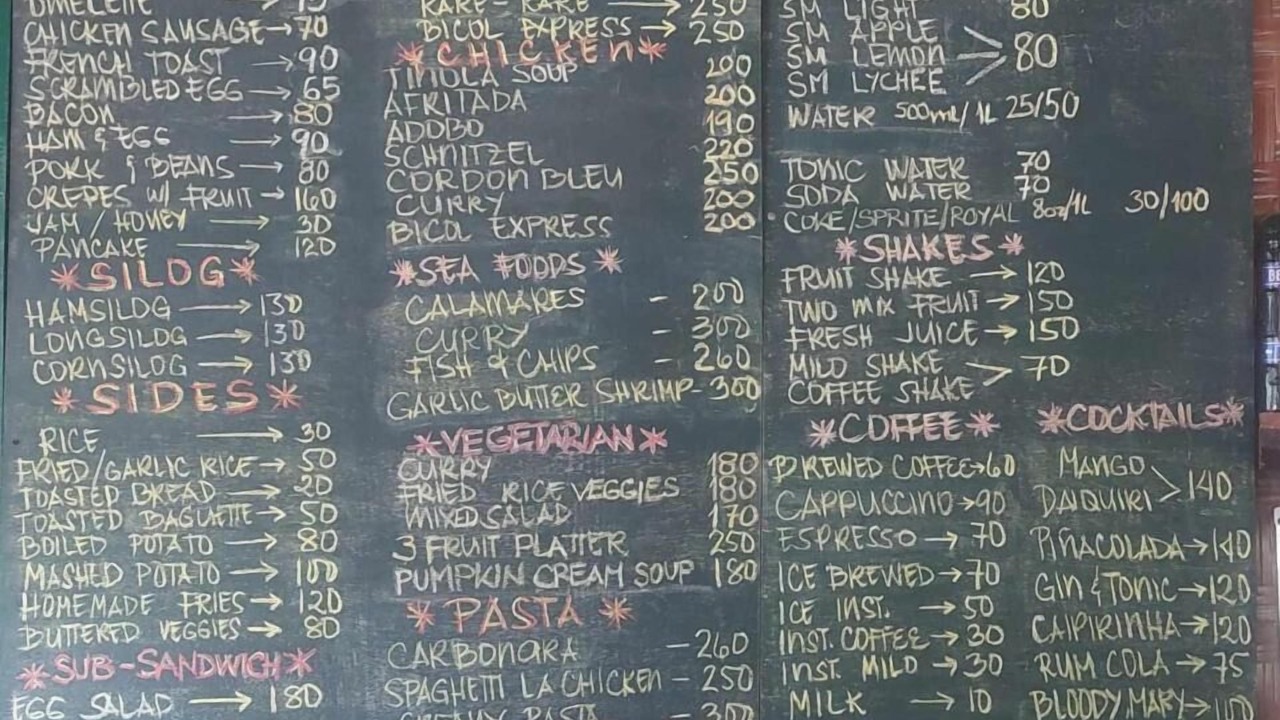 OMELETTE → 75
CHICKEN SAUSAGE → 70
FRENCH TOAST → 90
SCRAMBLED EGG → 65
BACON → 80
HAM & EGG → 90
PORK & BEANS → 80
CREPES W/ FRUIT → 160
JAM / HONEY → 30
PANCAKE → 120
*SILOG*
HAMSILOG → 130
LONGSILOG → 130
CORNSILOG → 130
*SIDES*
RICE → 30
FRIED/GARLIC RICE → 50
TOASTED BREAD → 20
TOASTED BAGUETTE → 50
BOILED POTATO → 80
MASHED POTATO → 100
HOMEMADE FRIES → 120
BUTTERED VEGGIES → 80
*SUB-SANDWICH*
EGG SALAD → 180
KARE-KARE → 250
BICOL EXPRESS → 250
*CHICKEN*
TINOLA SOUP 200
AFRITADA 200
ADOBO 190
SCHNITZEL 220
CORDON BLEU 250
CURRY 200
BICOL EXPRESS 200
*SEA FOODS*
CALAMARES - 200
CURRY - 300
FISH & CHIPS - 260
GARLIC BUTTER SHRIMP - 300
*VEGETARIAN*
CURRY 180
FRIED RICE VEGGIES 180
MIXED SALAD 170
3 FRUIT PLATTER 250
PUMPKIN CREAM SOUP 180
*PASTA*
CARBONARA - 260
SPAGHETTI LA CHICKEN - 250
CREAMY PASTA - 300
SM LIGHT 80
SM APPLE
SM LEMON > 80
SM LYCHEE
WATER 500ml/1L 25/50
TONIC WATER 70
SODA WATER 70
COKE/SPRITE/ROYAL 8oz/1L 30/100
*SHAKES*
FRUIT SHAKE → 120
TWO MIX FRUIT → 150
FRESH JUICE → 150
MILO SHAKE > 70
COFFEE SHAKE
*COFFEE*
BREWED COFFEE → 60
CAPPUCCINO → 90
ESPRESSO → 70
ICE BREWED → 70
ICE INST. → 50
INST. COFFEE → 30
INST. MILO → 30
MILK → 10
*COCKTAILS*
MANGO
DAIQUIRI > 140
PIÑACOLADA → 140
GIN & TONIC → 120
CAIPIRINHA → 120
RUM COLA → 75
BLOODY MARY → 100